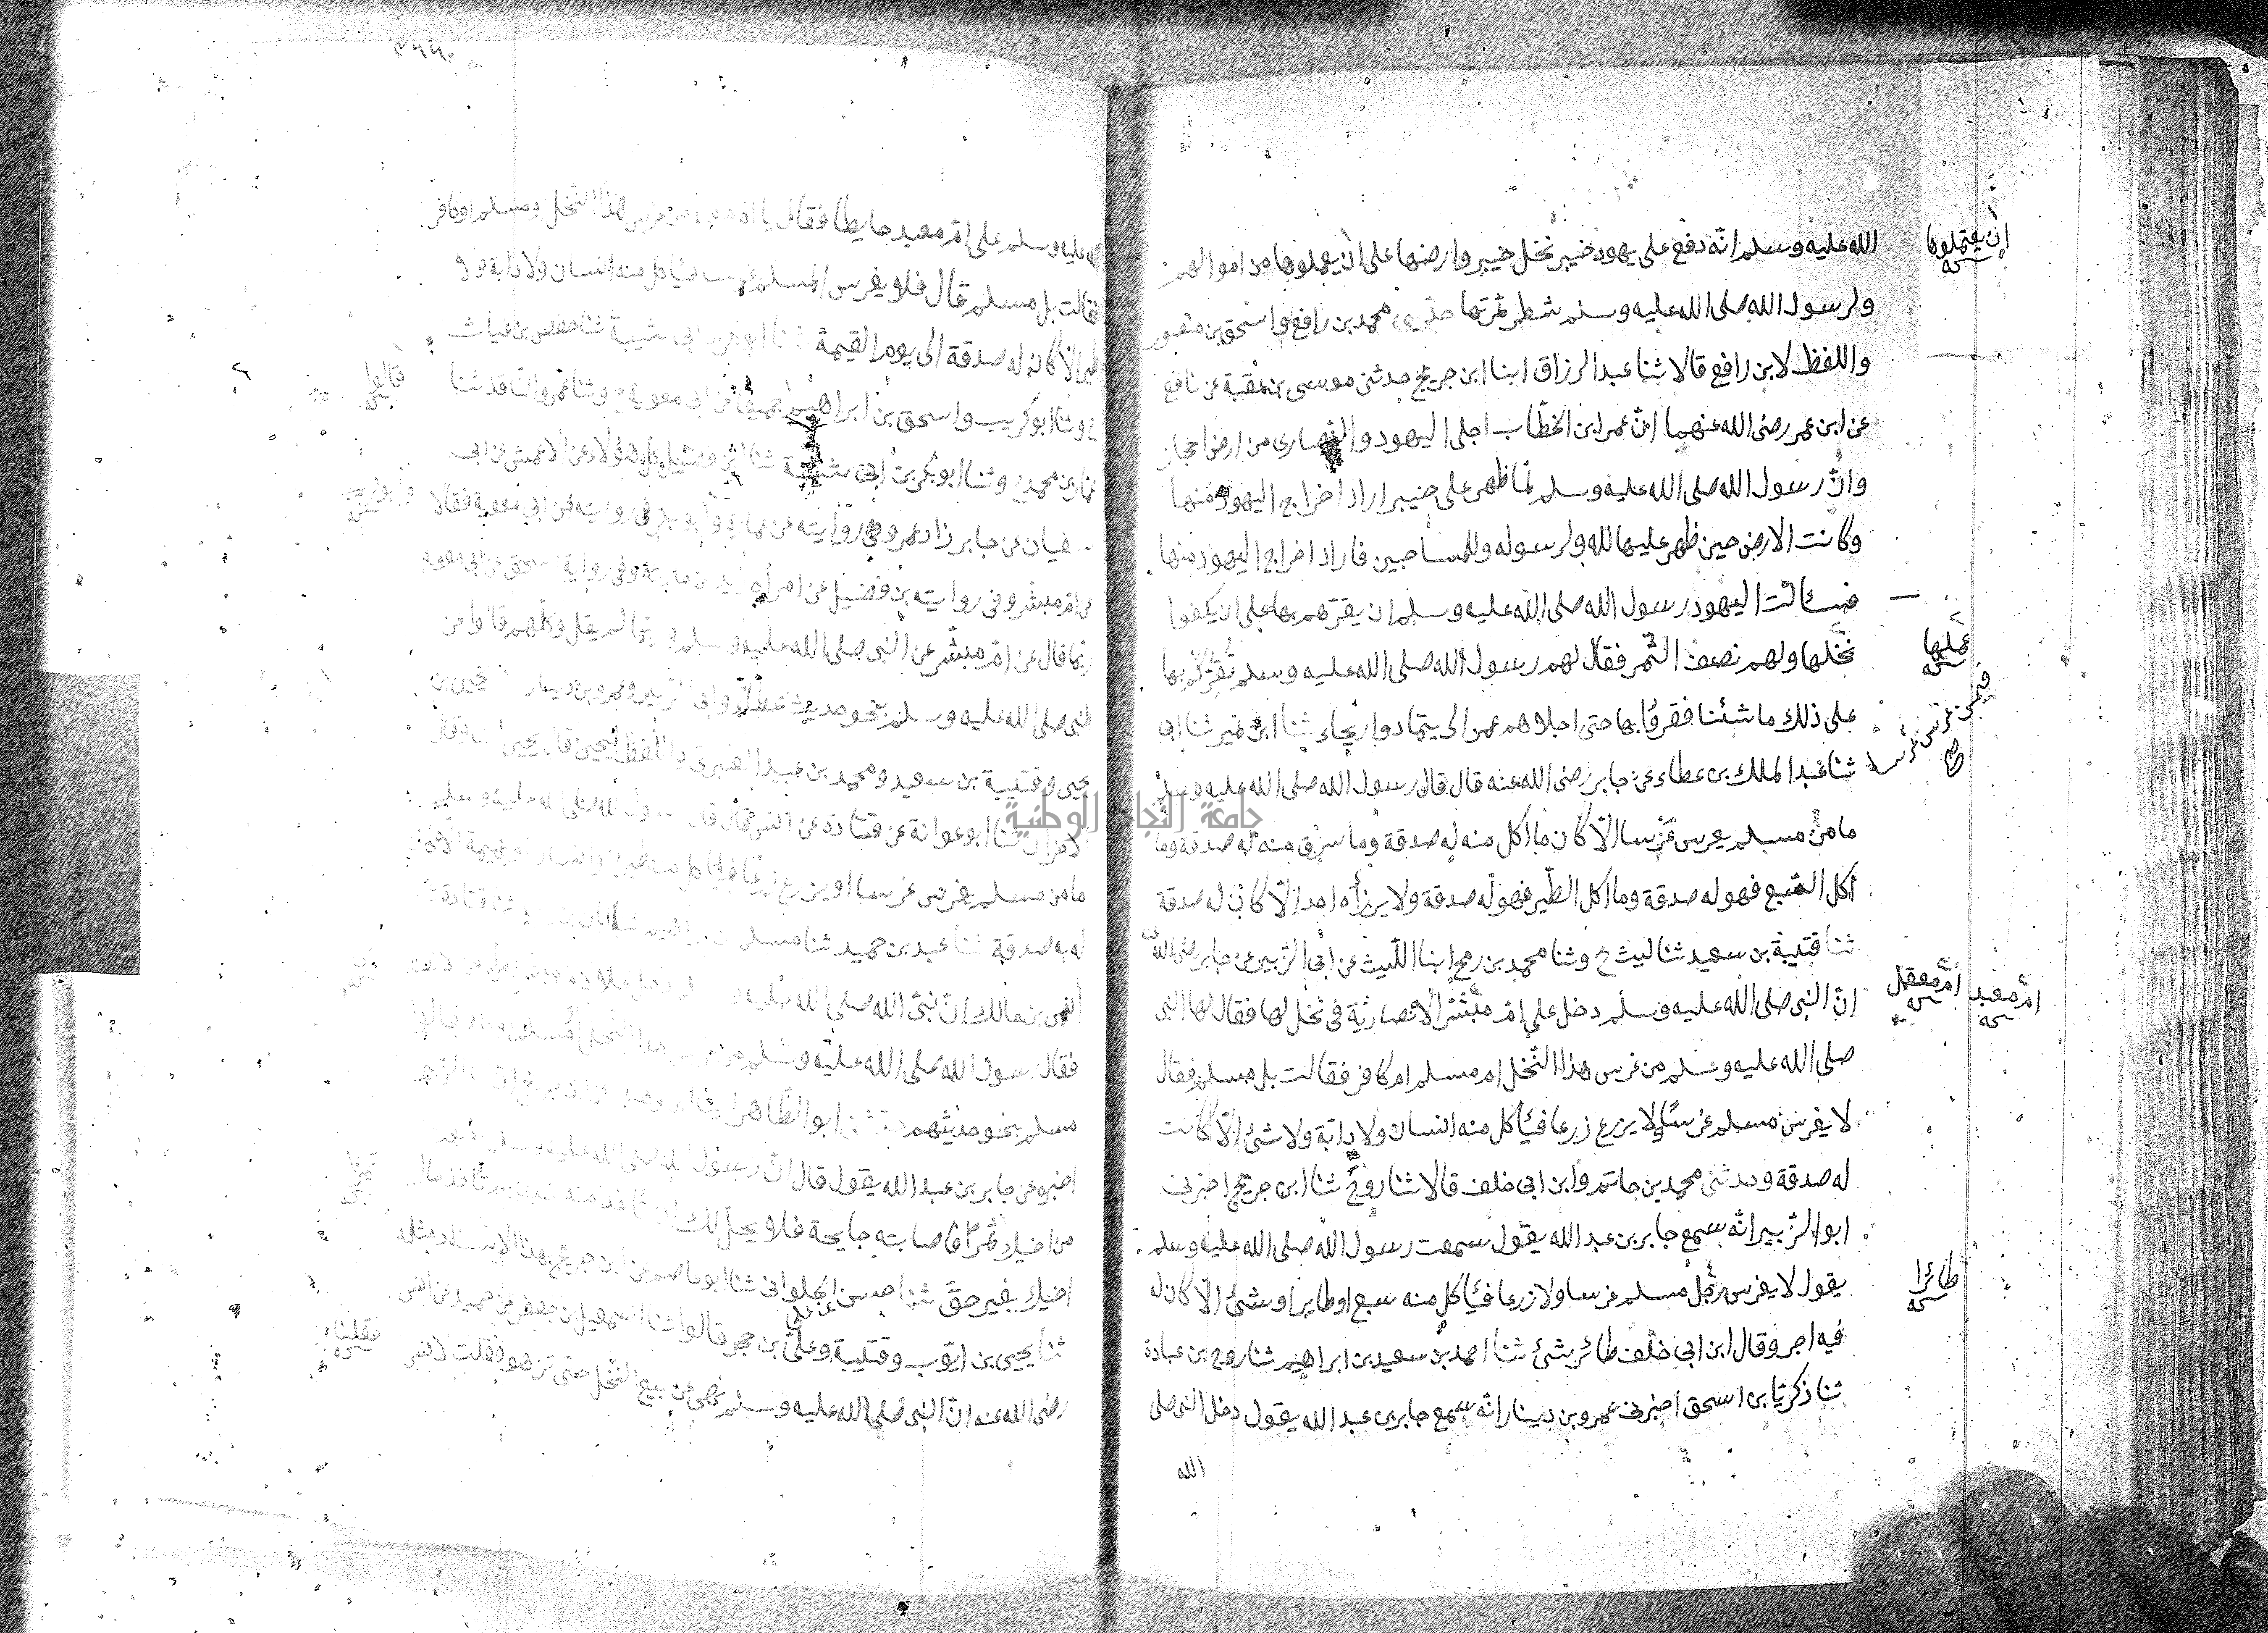 الله عليه وسلم انّه دفع على يهود خيبر نخل خيبر وارضها على ان يعملوها من اموالهم
ان يعتملوها
ولرسول الله صلى الله عليه وسلم شطر ثمرتها حدثنى محمد بن رافع واسحق بن منصور
واللفظ لابن رافع قالا ثنا عبد الرزاق ابنا ابن جريج حدثنى موسى بن عقبة عن نافع
عن ابن عمر رضى الله عنهما انّ عمر ابن الخطّاب اجلى اليهود والنصارى من ارض الحجاز
وانّ رسول الله صلى الله عليه وسلم لمّا ظهر على خيبر اراد اخراج اليهود منها
وكانت الارض حين ظهر عليها لله ولرسوله وللمساحبين فاراد اخراج اليهود منها
فسئالت اليهود رسول الله صلى الله عليه وسلم ان يقرّهم بها على ان يكفوا
نخلها ولهم نصف الثّمر فقال لهم رسول الله صلى الله عليه وسلم نُقرّكم بها
عملها
على ذلك ما شئنا فقرّوا بها حتى اجلاهم عمر الى يتما دواريحاء ثنا ابن نمير ثنا ابى
ثنا عبد الملك بن عطاء عن جابر رضى الله عنه قال قال رسول الله صلى الله عليه وسلم
ما من مسلم يغرس غرسا الّا كان ما اكل منه له صدقة وما سرق منه له صدقة وما
اكل السّبع فهو له صدقة وما اكل الطّير فهو له صدقة ولا يرزأه احد الّا كان له صدقة
ثنا قتيبة بن سعيد ثنا ليث ح وثنا محمد بن رمح ابنا اللّيث عن ابى الزّبير عن جابر رضى الله
انّ النبى صلى الله عليه وسلم دخل على امّ مبشّر الانصاريّة فى نخل لها فقال لها النبى
امّ معقل
امّ معبد
صلى الله عليه وسلم من غرس هذا النّخل ام مسلم ام كافر فقالت بل مسلم فقال
لا يغرس مسلم غرسًا ولا يزرع زرعا فيأكل منه انسان ولا دابّة ولا شئ الّا كانت
له صدقة وحدثنى محمد بن حاتم وابن ابى خلف قالا ثنا روح ثنا ابن جريج اخبرنى
ابو الزّبير انّه سمع جابر بن عبد الله يقول سمعت رسول الله صلى الله عليه وسلم
يقول لا يغرس رجل مسلم غرسا ولا زرعا فيأكل منه سبع او طايرا وشئ الّا كان له
طائرا
فيه اجر وقال ابن ابى خلف طائر شئ ثنا احمد بن سعيد بن ابراهيم ثنا روح بن عبادة
ثنا زكريّا بن اسحق اخبرنى عمرو بن دينار انّه سمع جابر بن عبد الله يقول دخل النبى صلى
الله
الله عليه وسلم على امّ معبد حايطا فقال يا غرس هذا النّخل ومسلم او كافر
فقالت بل مسلم قال فلا يغرس المسلم فيأكل منه انسان ولا دابة ولا
طير الّا كان له صدقة الى يوم القيمة ثنا ابو بكر بن ابى شيبة ثنا حفص بن غياث
ح وثنا ابو كريب واسحق بن ابراهيم جميعًا عن ابى معوية ح وثنا عمرو النّاقد ثنا
قالوا
عمّار بن محمد ح وثنا ابو بكر بن ابى شيبة ثنا ابن فضيل كل هؤلاء عن الاعمش عن ابى
سفيان عن جابر زاد عمرو فى روايته عن عمار وابو بكر فى روايته عن ابى معوية فقالا
عن امّ مبشر وفى رواية بن فضيل عن امرأة زيد بن حارثة وفى رواية اسحق عن ابى معوية
ربّما قال عن امّ مبشّر عن النّبى صلى الله عليه وسلم وربّما لم يقل وكلّهم قالوا عن
النبى صلى الله عليه وسلم بنحو حديث عطاء وابى الزّبير وعمرو بن دينار يحيى بن
يحيى وقتيبة بن سعيد ومحمد بن عبيد الغبرى واللّفظ ليحيى قال يحيى
ثنا ابو عوانة عن قتادة عن انس قال قال رسول الله صلى الله عليه وسلم
ما من مسلم يغرس غرسا او يزرع زرعا فيأكل منه طير او انسان او بهيمة الّا كان
له به صدقة ثنا عبد بن حميد ثنا مسلم بن ابراهيم ثنا ابان بن يزيد ثنا قتادة
انس بن مالك انّ نبىّ الله صلى الله عليه
فقال رسول الله صلى الله عليه وسلم من غرس هذا النّخل مسلم
مسلم بنحو حديثهم حدثنى ابو الطّاهر
اخبره عن جابر بن عبد الله يقول قال انّ رسول الله صلى الله عليه وسلم
من اخيك ثمرًا فاصابته جايحة فلا يحلّ لك
اخيك بغير حقّ ثنا حسن الحلوانى ثنا ابو عاصم عن ابن جريج بهذا الاسناد مثله
ثنا يحيى بن ايّوب وقتيبة وعلىّ بن حجر قالوا ثنا اسمعيل بن جعفر عن حميد عن انس
فقلنا
رضى الله عنه انّ النبى صلى الله عليه وسلم نهى عن بيع النّخل حتى تزهو فقلت لانس
جامعة النجاح الوطنية